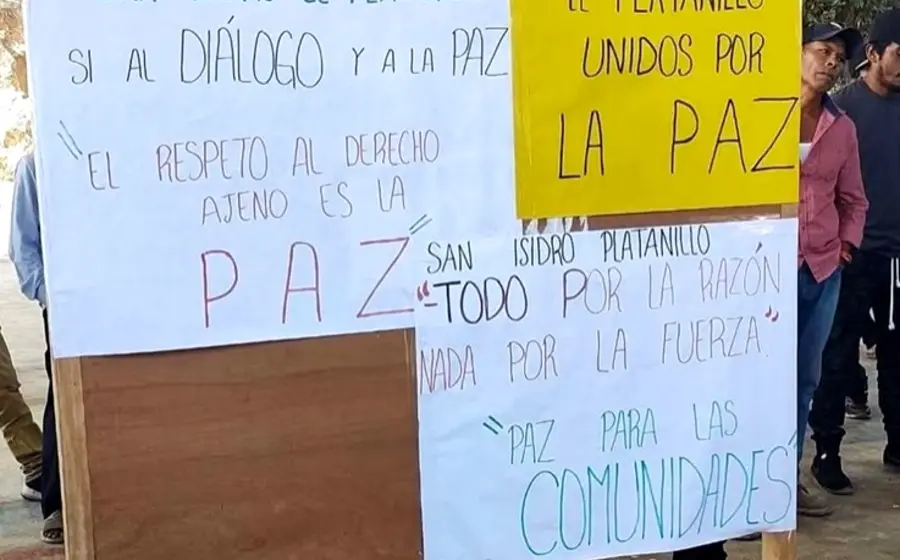 SI AL DIÁLOGO Y A LA PAZ
"EL RESPETO AL DERECHO
AJENO ES LA
PAZ"
EL PLATANILLO
UNIDOS POR
LA PAZ
SAN ISIDRO PLATANILLO
"-TODO POR LA RAZÓN
NADA POR LA FUERZA".
"PAZ PARA LAS
COMUNIDADES"